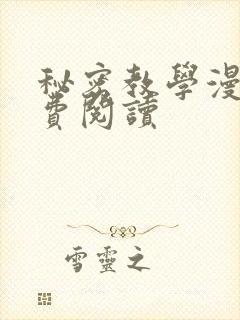 秘密教學漫
費閱讀
雪靈之